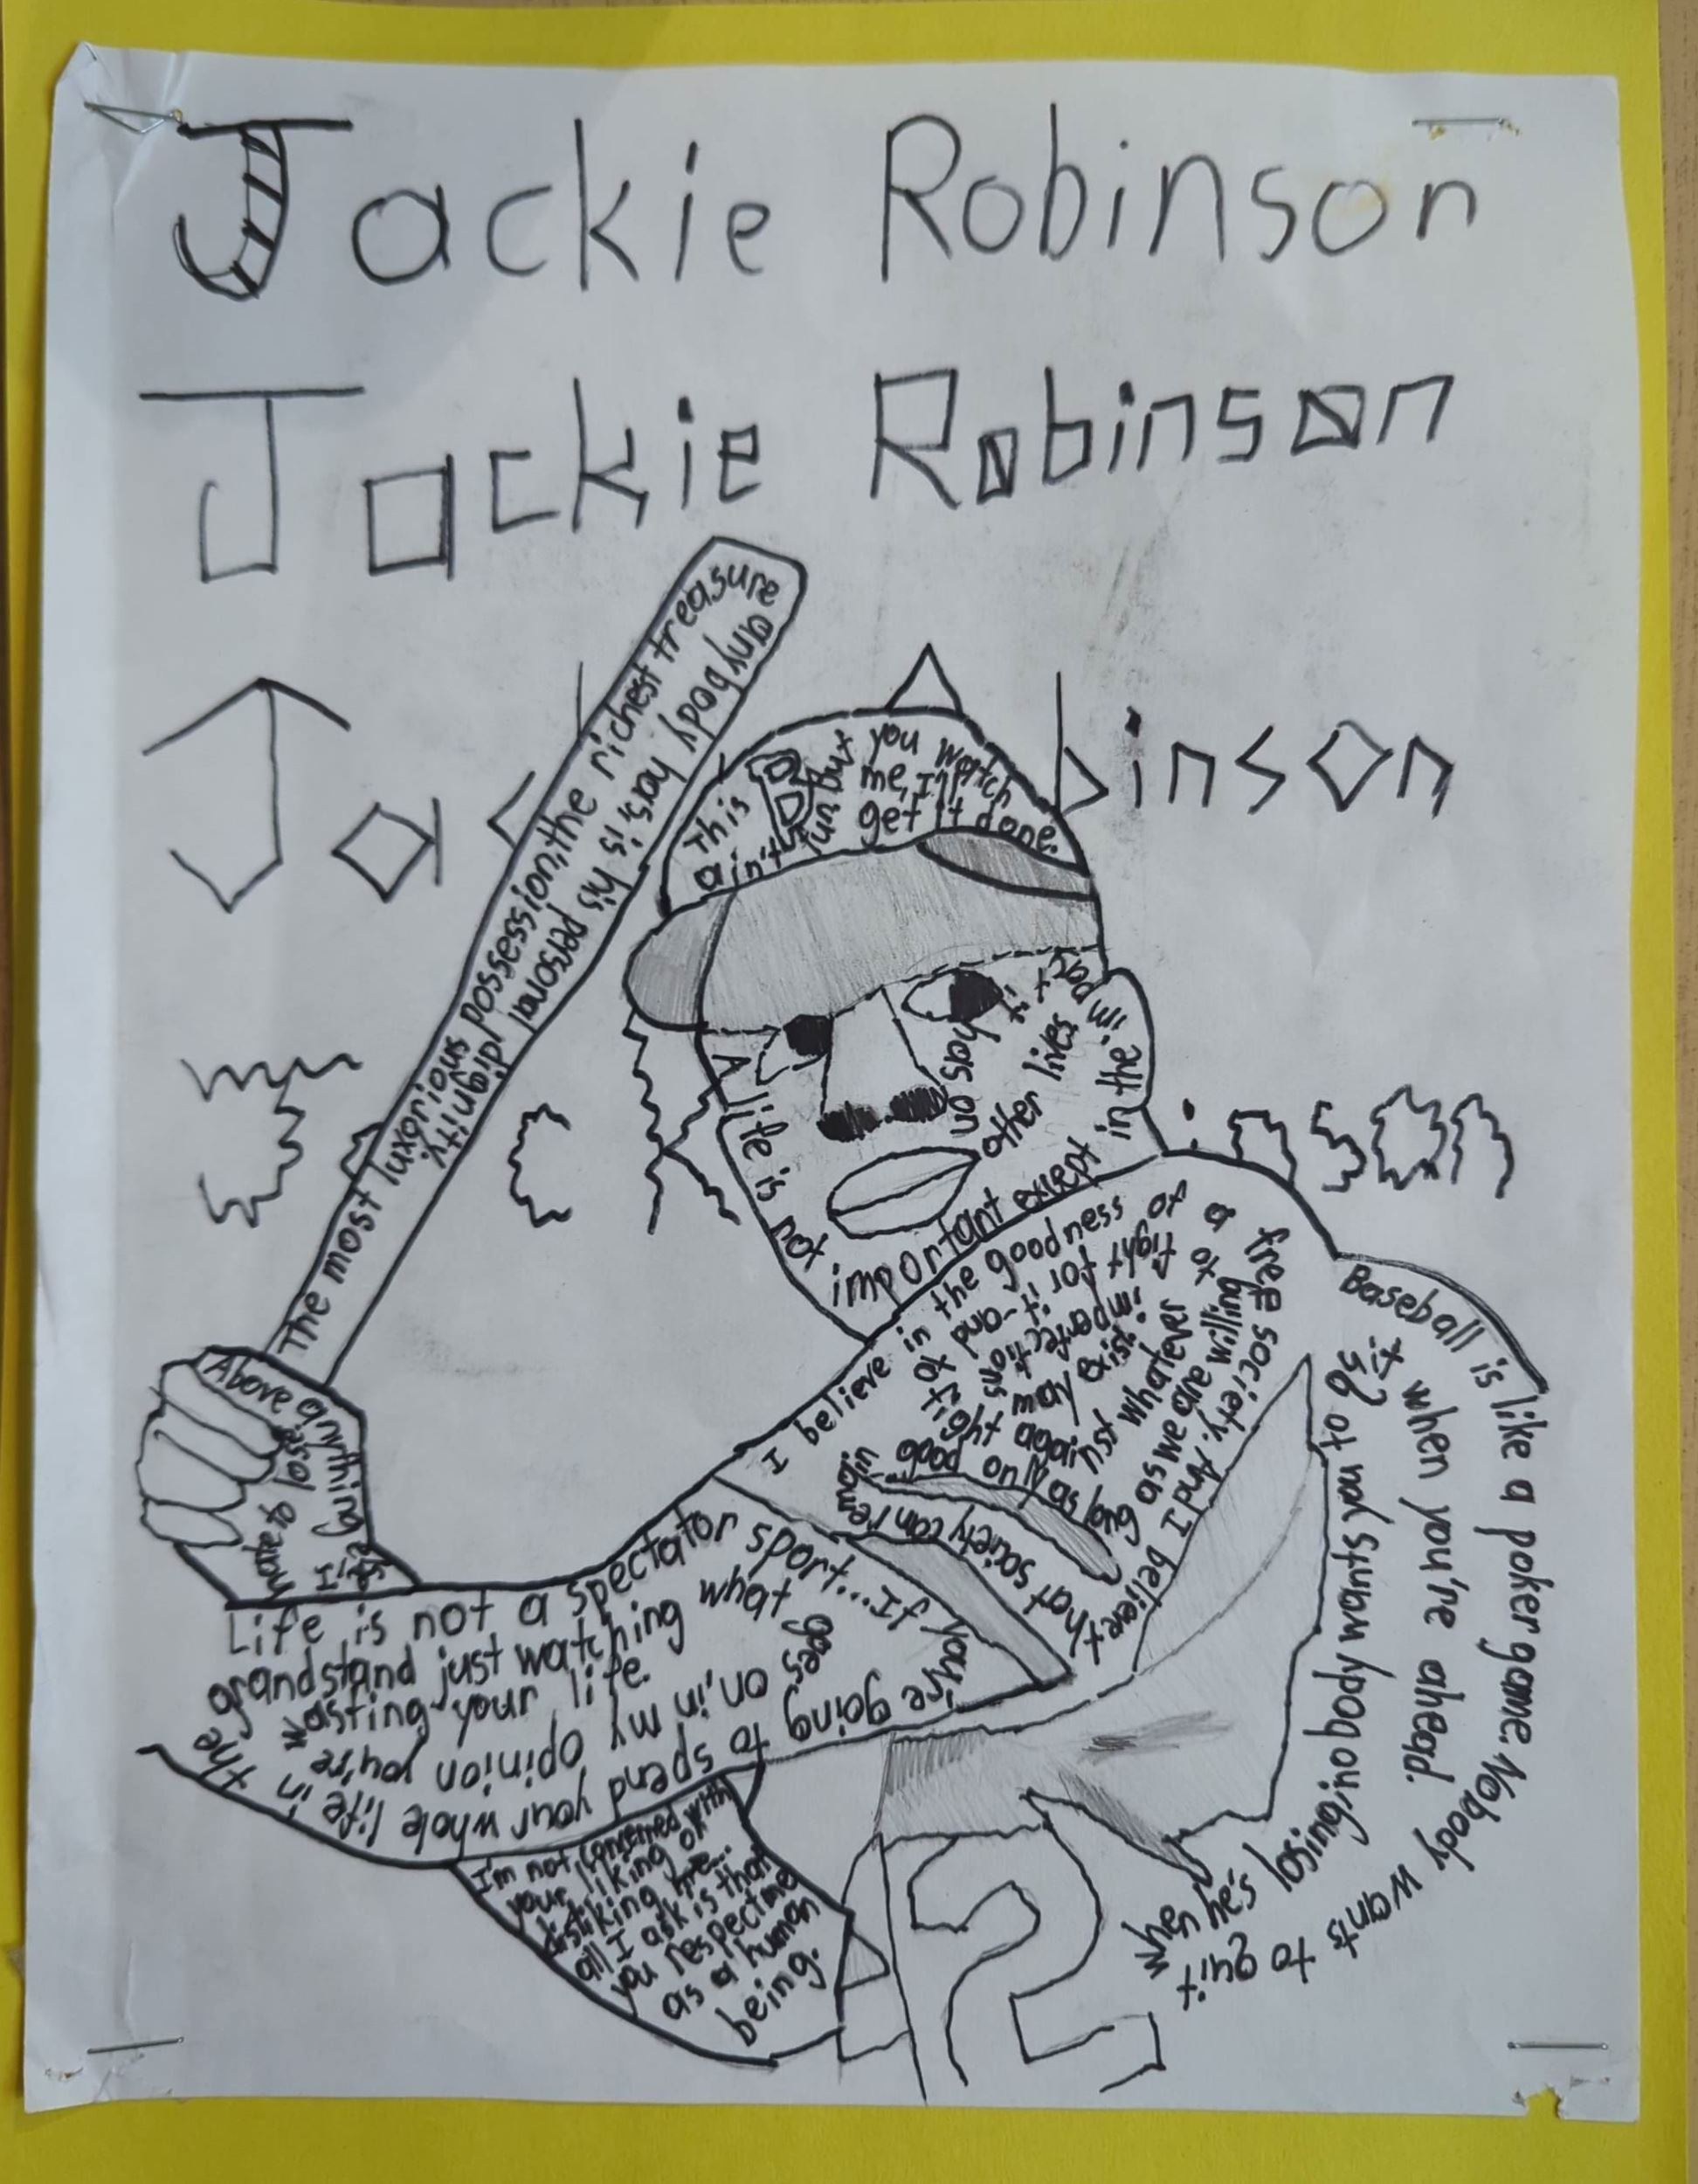 Jackie Robinson
Jackie Robinson
Ja binson
J c k inson
The most luxurious possession, the richest treasure
anybody has, is his personal
dignity.
This
ain't fun but you watch
me, I'll
get it done.
A life is not important except in the
impact it
has on
other lives
Above anything
else, I
hate to lose.
I believe in the goodness of
a free society. And I believe that society can remain
good only so long as we are willing to
fight for it - and
to fight against whatever
imperfections
may exist.
Life is not a spectator sport... If you're going to spend your whole life in the
grandstand just watching what goes on, in my opinion you're
wasting your life.
I'm not concerned with
your liking or
disliking me...
all I ask is that
you respect me
as a human
being.
Baseball is like a poker game. Nobody wants to quit
when he's losing; nobody wants you to
quit when you're ahead.